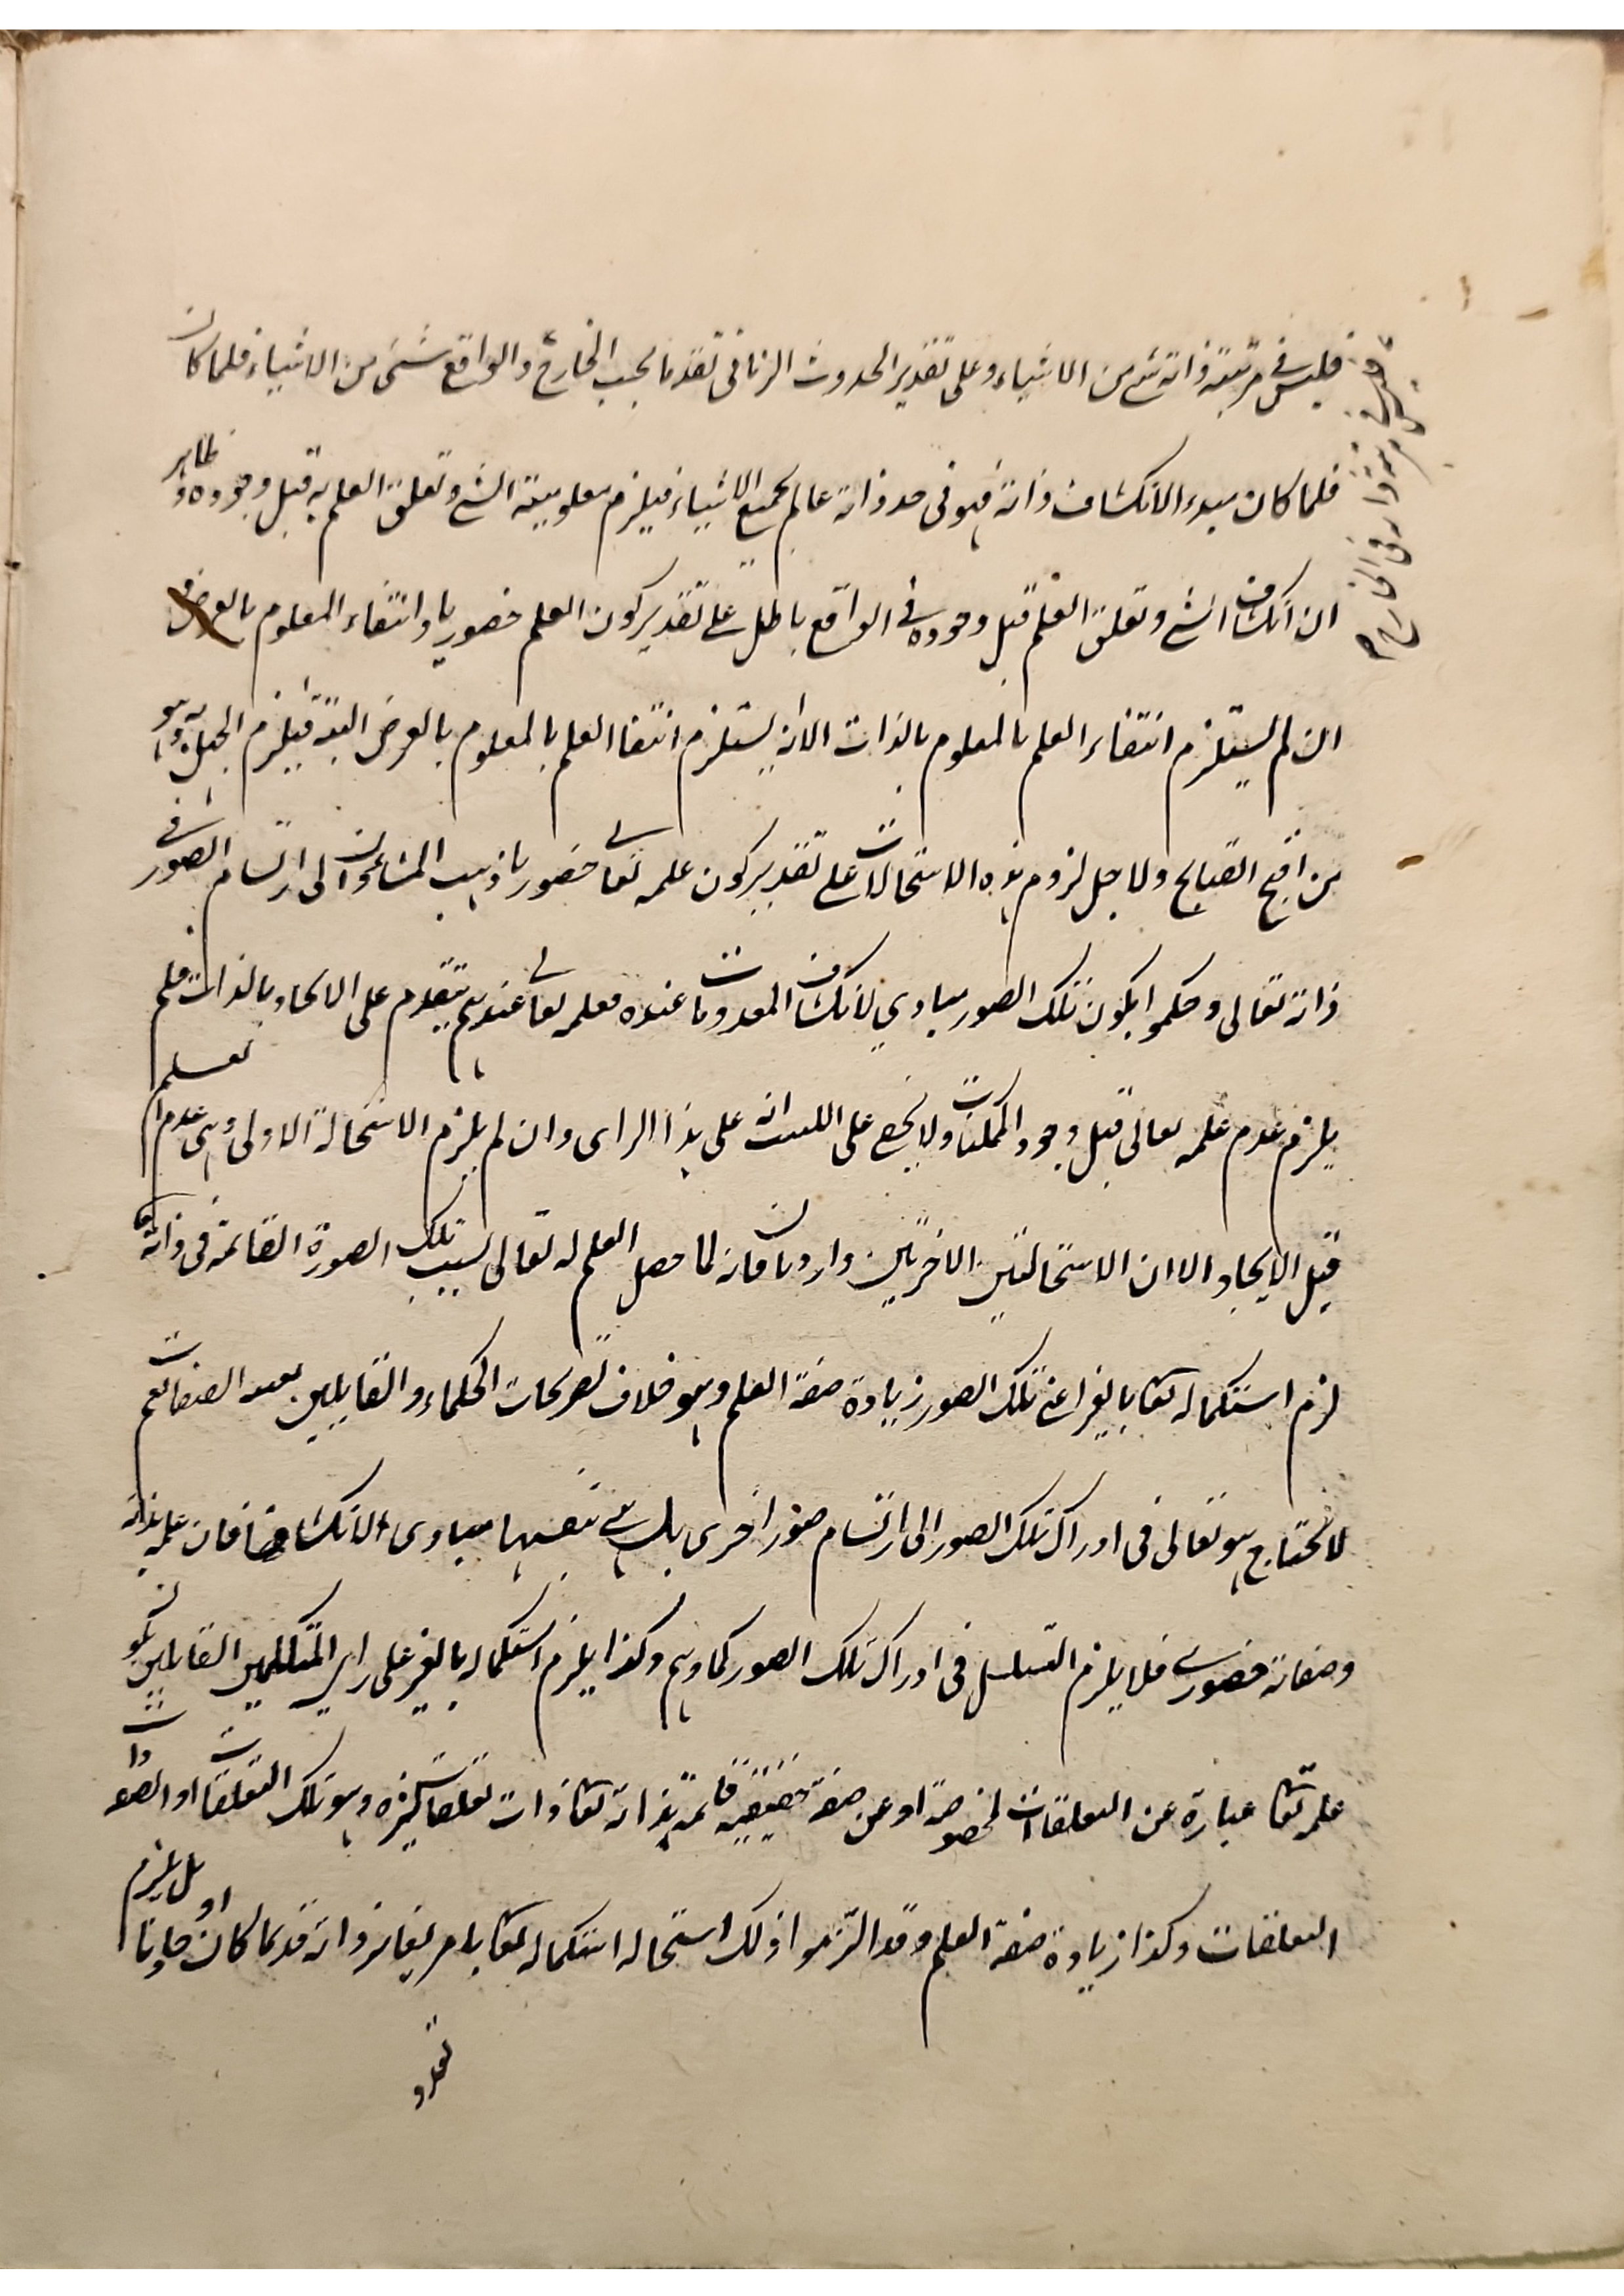 فليس في مرتبة ذاته شئ من الاشياء وعلى تقدير الحدوث الزماني تقدما بحسب الخارج والواقع شئ من الاشياء فلما كان
فلما كان مبدء الانكشاف ذاته فهو في حد ذاته عالم بجميع الاشياء فيلزم معلومية الشئ وتعلق العلم به قبل وجوده وظاهر
ان انكشاف الشئ وتعلق العلم قبل وجوده في الواقع باطل على تقدير كون العلم حضوريا وانتفاء المعلوم بالعرض
ان لم يستلزم انتفاء العلم بالمعلوم بالذات الا انه يستلزم انتفا العلم بالمعلوم بالعرض البتة فيلزم الجهل به وهو
من اقبح القبايح ولاجل لزوم هذه الاستحالات على تقدير كون علمه تعالى حضوريا ذهب المشاءون الى ارتسام الصور في
ذاته تعالى وحكموا بكون تلك الصور مبادي لانكشاف المعدومات عنده فعلمه تعالى عندهم يتقدم على الايجاد بالذات فلم
يلزم عدم علمه تعالى قبل وجود الممكنات ولا يخفى على انه على هذا الراى وان لم يلزم الاستحالة الاولى وهي عدم العلم
قبل الايجاد الا ان الاستحالتين الاخريين واردتان فانه لما حصل العلم له تعالى بسبب تلك الصورة القائمة في ذاته تعا
لزم استكماله تعا بالغير اعنى تلك الصور زيادة صفة العلم وهو خلاف تصريحات الحكماء والقايلين بعينية الصفات نعم
لا يحتاج هو تعالى في ادراك تلك الصور الى ارتسام صور اخرى بل هي بنفسها مبادى الانكشاف فان علمه بذاته
وصفاته حضورى فلا يلزم التسلسل في ادراك تلك الصور كما وهم وكذا يلزم استكماله بالغير على راي المتكلمين القايلين بكون
علمه تعا عبارة عن التعلقات المخصوصة او عن صفة حقيقية قائمة بذاته تعا ذات تعلقات كثيرة وهو تلك التعلقات او الصفة ذات
التعلقات وكذا زيادة صفة العلم وقد التزموا ذلك استحالة استكماله تعا بامر يغاير ذاته قديما كان او حادثا بل يلزم
تعدد